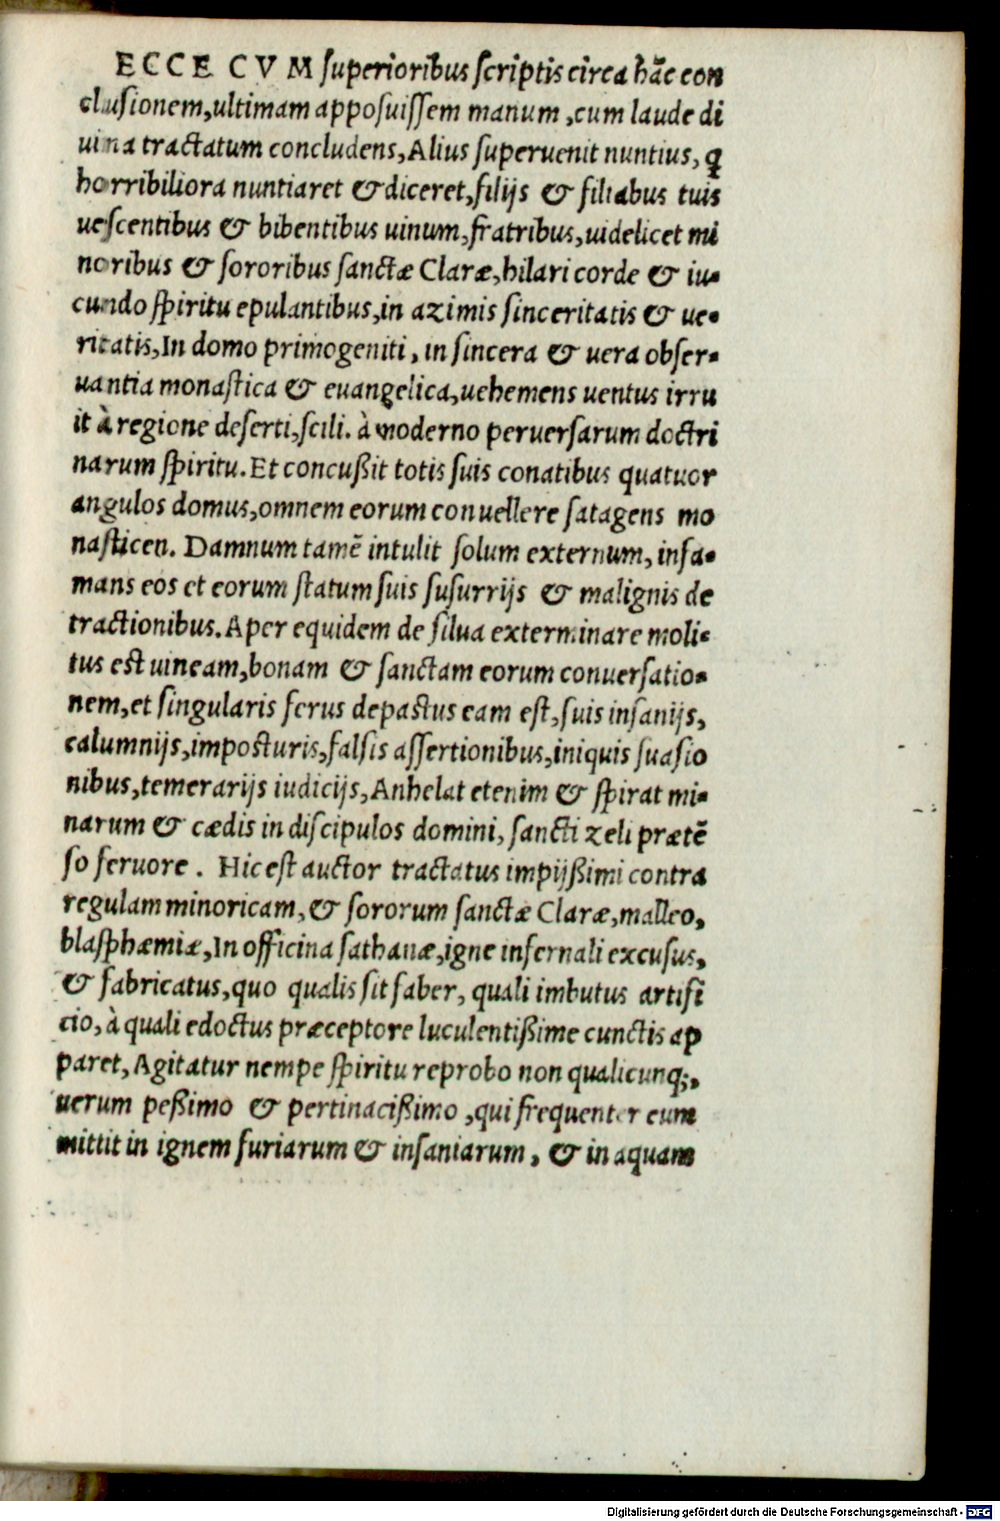 ECCE CVM superioribus scriptis circa hāc con
clusionem,ultimam apposuissem manum ,cum laude di
uina tractatum concludens,Alius superuenit nuntius, q
horribiliora nuntiaret & diceret,filijs & filiabus tuis
uescentibus & bibentibus uinum,fratribus,uidelicet mi
noribus & sororibus sanctæ Claræ,hilari corde & iu-
cundo spiritu epulantibus,in azimis sinceritatis & ue-
ritatis,In domo primogeniti, in sincera & uera obser-
uantia monastica & euangelica,uehemens uentus irru
it à regione deserti,scili. à moderno peruersarum doctri
narum spiritu. Et concußit totis suis conatibus quatuor
angulos domus,omnem eorum conuellere satagens mo
nasticen. Damnum tamē intulit solum externum, infa-
mans eos et eorum statum suis susurrijs & malignis de
tractionibus. Aper equidem de silua exterminare moli-
tus est uineam,bonam & sanctam eorum conuersatio-
nem,et singularis ferus depastus eam est,suis insanijs,
calumnijs,imposturis,falsis assertionibus,iniquis suasio
nibus,temerarijs iudicijs,Anhelat etenim & spirat mi-
narum & cædis in discipulos domini, sancti zeli prætē
so feruore . Hic est auctor tractatus impijßimi contra
regulam minoricam, & sororum sanctæ Claræ,malleo,
blasphæmiæ,In officina sathanæ,igne infernali excusus,
& fabricatus,quo qualis sit faber, quali imbutus artifi
cio, à quali edoctus præceptore luculentißime cunctis ap
paret, Agitatur nempe spiritu reprobo non qualicunq;,
uerum peßimo & pertinacißimo ,qui frequenter eum
mittit in ignem furiarum & insaniarum, & in aquam
Digitalisierung gefördert durch die Deutsche Forschungsgemeinschaft - DFG